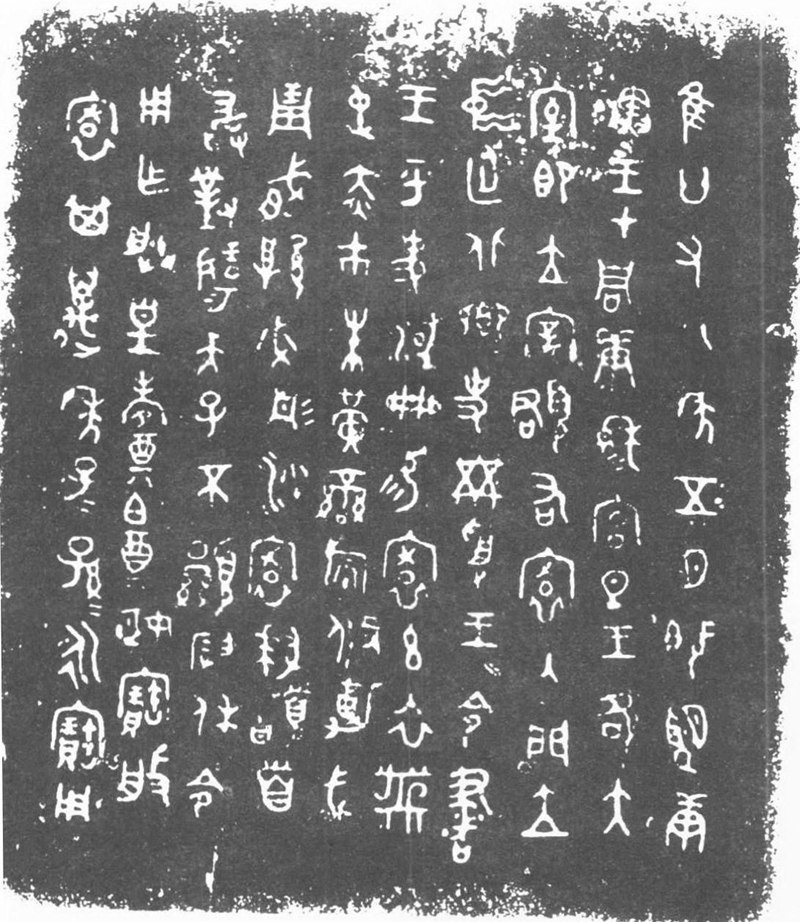 隹廿又八年五月既望庚
寅王才周康穆宮旦王各大
室即立宰頵右寰入門立
中廷北鄉史黹受王令書
王乎史淢冊易寰玄衣黹
屯赤巿朱黃䜌旂攸勒戈
琱㦰厚柲彤沙寰拜𩒨首
敢對揚天子不顯叚休令
用乍朕皇考奠白奠姬寶般
寰其萬年子=孫=永寶用